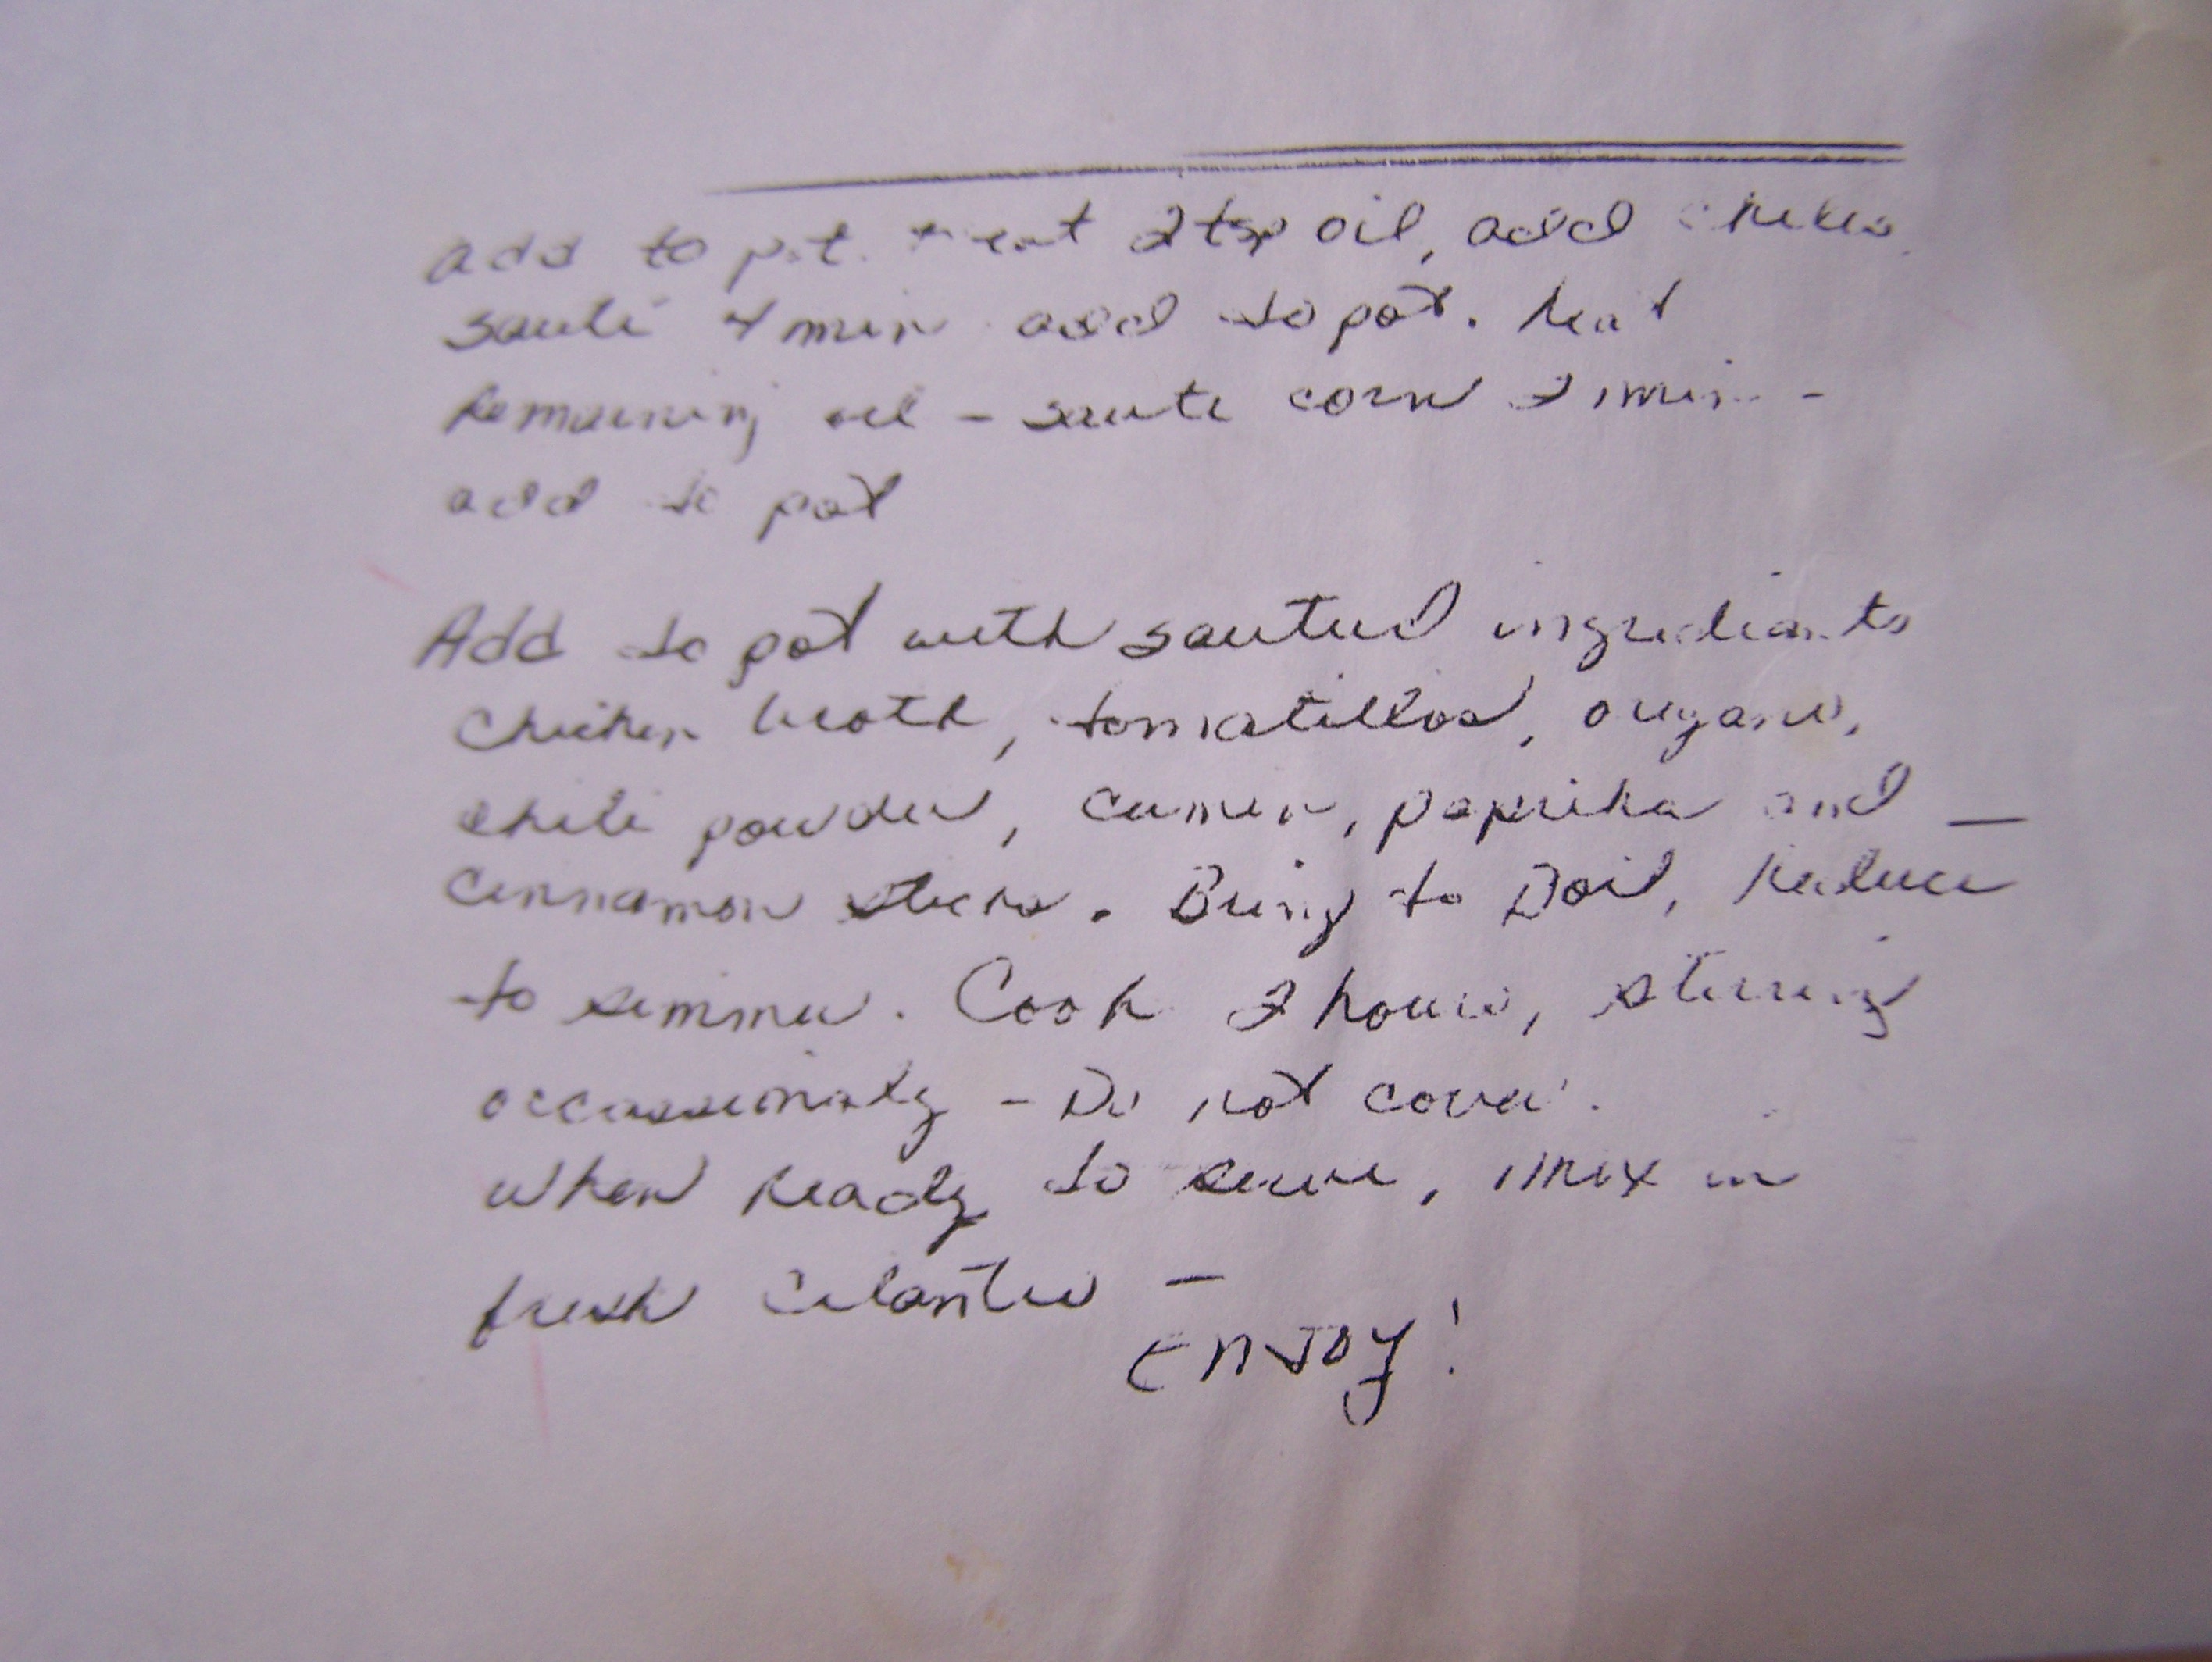 add to pot. Heat 2 tsp oil, add chiles
sauté 4 min add to pot. heat
Remaining oil - saute corn 2 min -
add to pot
Add to pot with sauteed ingredients
chicken broth, tomatillos, oregano,
chili powder, cumin, paprika and -
cinnamon sticks. Bring to Boil, Reduce
to simmer. Cook 2 hours, stirring
occassionaly - Do not cover.
when Ready to serve, mix in
fresh cilantro -
Enjoy!